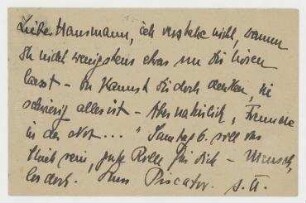 Lieber Hausmann, ich verstehe nicht, warum
Du nicht wenigstens etwas von Dir hören
lässt - Du kannst Dir doch denken, wie
schwierig alles ist - Aber natürlich, Freunde
in der Not.... " Samstag 6. soll das
Stück sein, gute Rolle für Dich - Mensch,
lies doch. Dein Piscator. s. U.